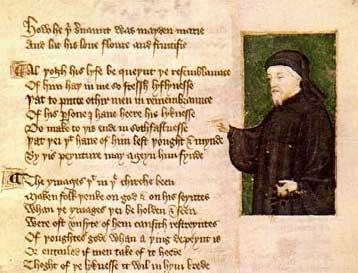 How he þⁱ seruaunt was mayden marie
And lat his loue floure and fructifie
Al þogh his lyfe be queynt þe resemblaunce
Of him haþ in me so fressh lyflynesse
Þat to putte othir men in remembraunce
Of his persone I haue heere his lyknesse
Do make to þis ende in sothfastnesse
Þat þei þᵗ haue of him lest þought & mynde
By þis peynture may ageyn him fynde
The ymages þᵗ in þᵉ chirche been
Maken folk þenke on god & on his seyntes
Whan þe ymages þei be holden & seen
Were oft vnsyte of hem causith restreyntes
Of þoughtes gode whan a þing depeynt is
Or entailed if men take of it heede
Thoght of þe lyknesse it wil in hym brede